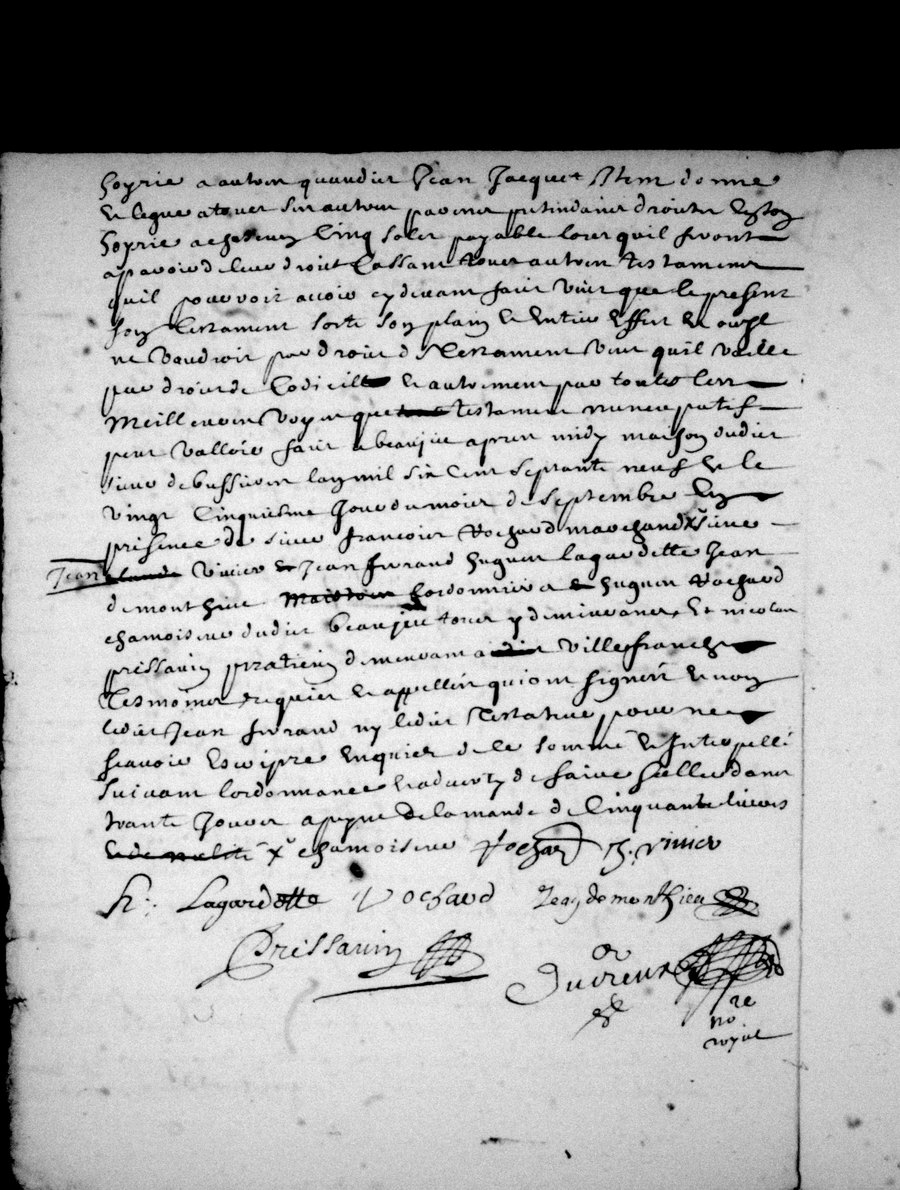 hoyrie a autre quaudict Jean Jacquet Item donne
et legue a tous ses autres parens pretendans droict en son
hoyrie a chascung cinq solz payable lors quil feront
apparoir de leur droict Cassant tous autres testamens
quil pourroit avoir cy devant faict veut que le present
son testament sorte son plain et entier effect et ou yl
ne vaudroit par droict de testament veut quil vaille
par droict de codicille et autrement par toutes les
meilleures voyes que testament nuncupatif
peut valloir faict a beaujeu apres midy maison dudict
sieur de bussieres lan mil six cent septante neuf et le
vingt cinquiesme jour du mois de septembre en
presence de sieur francois Vochard marchand X sieur
Jean claude vivier et Jean ferrand hugues lagardette Jean
demonthieu cordonnier et hugues Vochard
chamoiseur dudict beaujeu tous y demeurans, et nicolas
prissavin praticien demeurant a villefranche
tesmoins requier et appellés qui ont signéz et non
ledict Jean ferrand ny ledict testateur pour ne
scavoir escripre enquier de le sommé et interpellé
suivant lordonnance et adverty de faire seeller dans
trante jours a peyne de lamande de cinquante livres
et de nullité X chamoiseur Vochard vivier
h: Lagardette Vochard Jean demonthieu
Prissavin
Ducreux
no re
royal